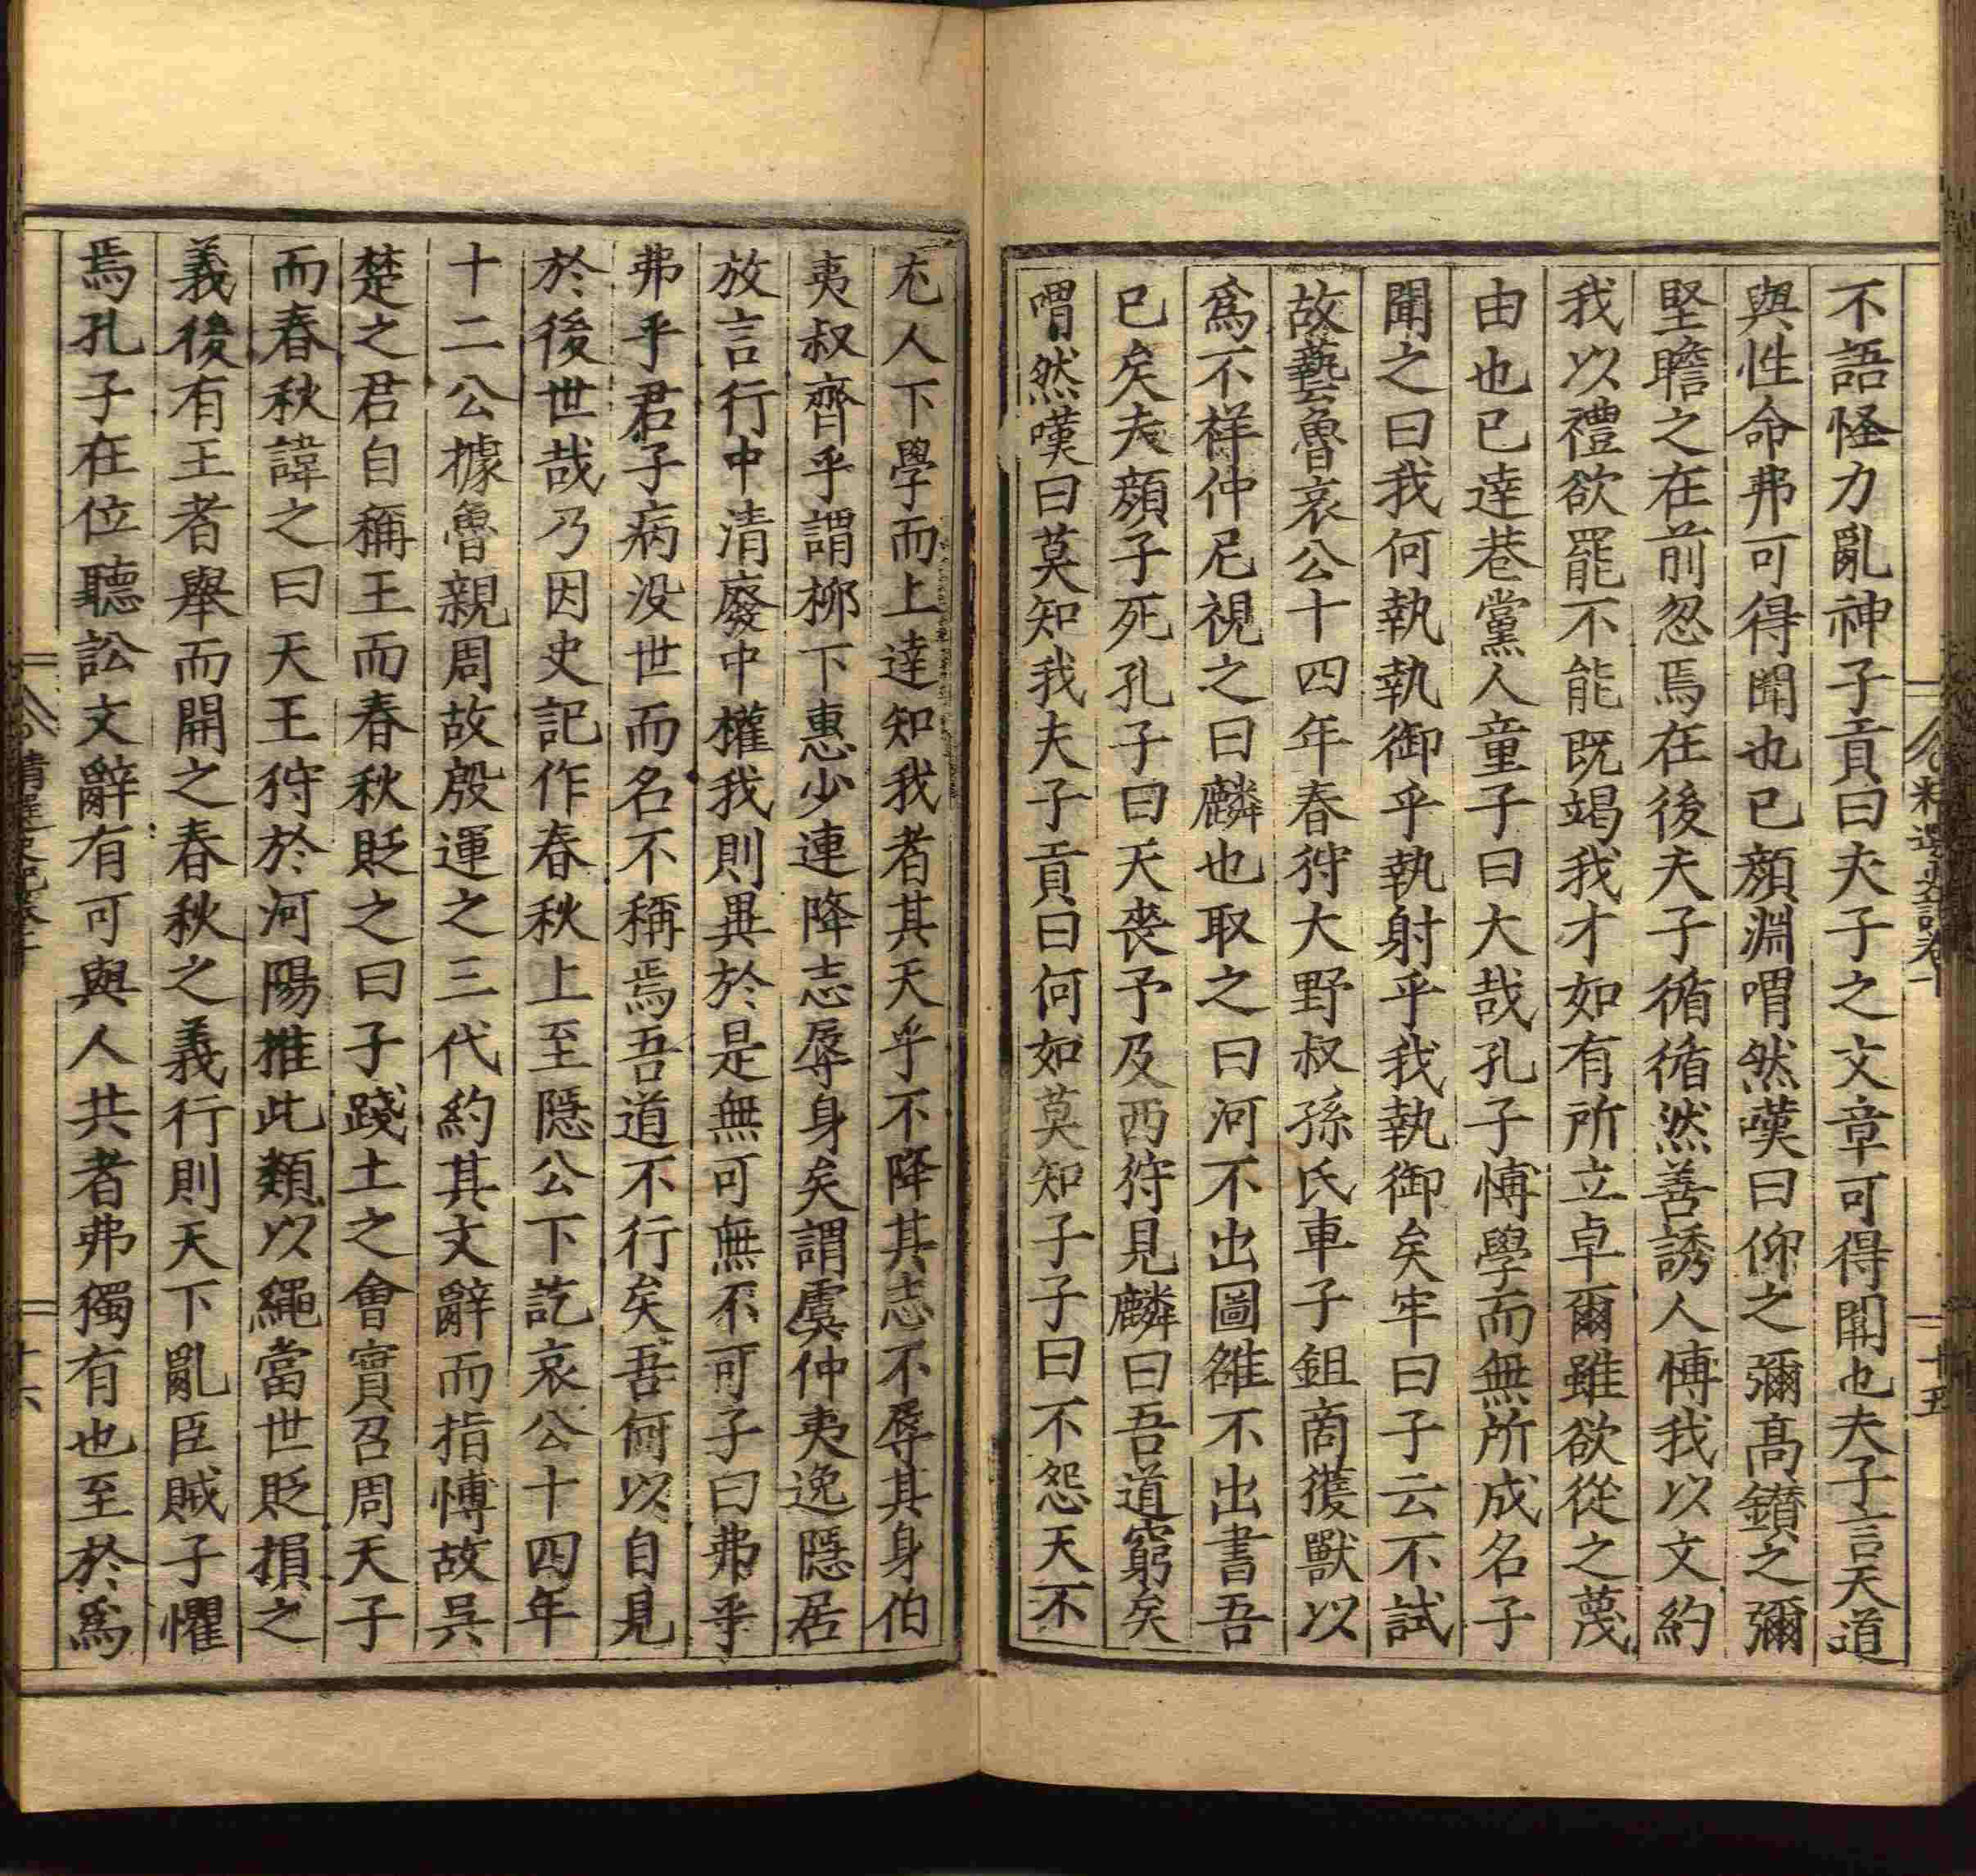 不語怪力亂神子貢曰夫子之文章可得聞也夫子言天道
與性命弗可得聞也已顏淵喟然嘆曰仰之彌高鑚之彌
堅瞻之在前忽焉在後夫子循循然善誘人博我以文約
我以禮欲罷不能既竭我才如有所立卓爾雖欲從之蔑
由也已逹巷黨人童子曰大哉孔子博學而無所成名子
聞之曰我何執執御乎執射乎我執御矣牢曰子云不試
故藝魯哀公十四年春狩大野叔孫氏車子鉏商獲獸以
爲不祥仲尼視之曰麟也取之曰河不出圖雒不出書吾
已矣夫顏子死孔子曰天喪予及西狩見麟曰吾道窮矣
喟然嘆曰莫知我夫子貢曰何如莫知子子曰不怨天不
尤人下學而上逹知我者其天乎不降其志不辱其身伯
夷叔齊乎謂柳下惠少連降志辱身矣謂虞仲夷逸隱居
放言行中清廢中權我則異於是無可無不可子曰弗乎
弗乎君子病没世而名不稱焉吾道不行矣吾何以自見
於後世哉乃因史記作春秋上至隱公下訖哀公十四年
十二公據魯親周故殷運之三代約其文辭而指博故吴
楚之君自稱王而春秋貶之曰子踐土之會實召周天子
而春秋諱之曰天王狩於河陽推此類以繩當世貶損之
義後有王者舉而開之春秋之義行則天下亂臣賊子懼
焉孔子在位聽訟文辭有可與人共者弗獨有也至於爲
精選史記卷十
十六